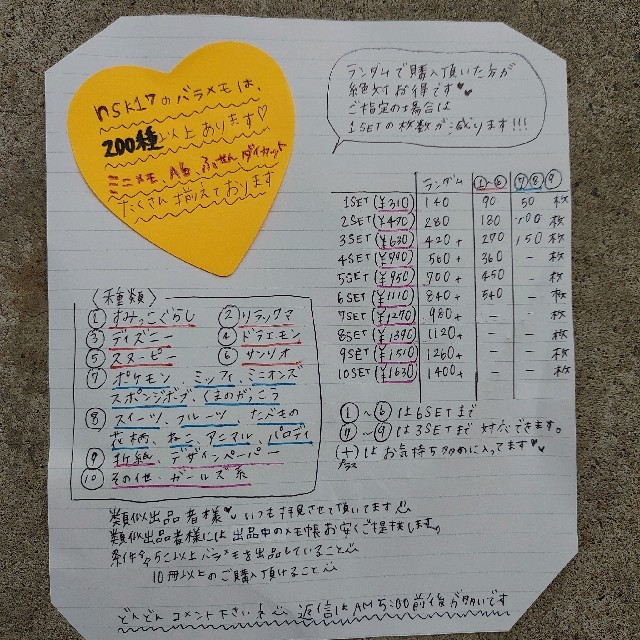 nsk17のバラメモは、
200種以上あります♡
ミニメモ、A6、ふせん、ダイカット
たくさん揃えております
ランダムで購入頂いた方が
絶対お得です♥♥
ご指定の場合は
1SETの枚数が減ります!!!
ランダム ①~⑥ ⑦⑧⑨
1SET(¥310) 140 90 50 枚
2SET(¥470) 280 180 100 枚
3SET(¥630) 420+ 270 150 枚
4SET(¥790) 560+ 360 - 枚
5SET(¥950) 700+ 450 - 枚
6SET(¥1110) 840+ 540 - 枚
7SET(¥1270) 980+ - - 枚
8SET(¥1390) 1120+ - - 枚
9SET(¥1510) 1260+ - - 枚
10SET(¥1630) 1400+ - - 枚
①~⑥は6SETまで
⑦~⑨は3SETまで対応できます。
(+)はお気持ち多めに入ってます♥♥
プラス
〈種類〉
①すみっこぐらし ②リラックマ
③ディズニー ④ドラエモン
⑤スヌーピー ⑥サンリオ
⑦ポケモン、ミッフィ、ミニオンズ
スポンジボブ、くまのがっこう
⑧スイーツ、フルーツ、たべもの
花柄、ねこ、アニマル、パロディ
⑨折紙、デザインペーパー
⑩その他・ガールズ系
類似出品者様♥いつも拝見させて頂いてます
類似出品者様には出品中のメモ帳お安くご提供します。
条件今5コ以上バラメモを出品していること
10冊以上のご購入頂けること
どんどんコメント下さいね 返信はAM5:00前後が多いです